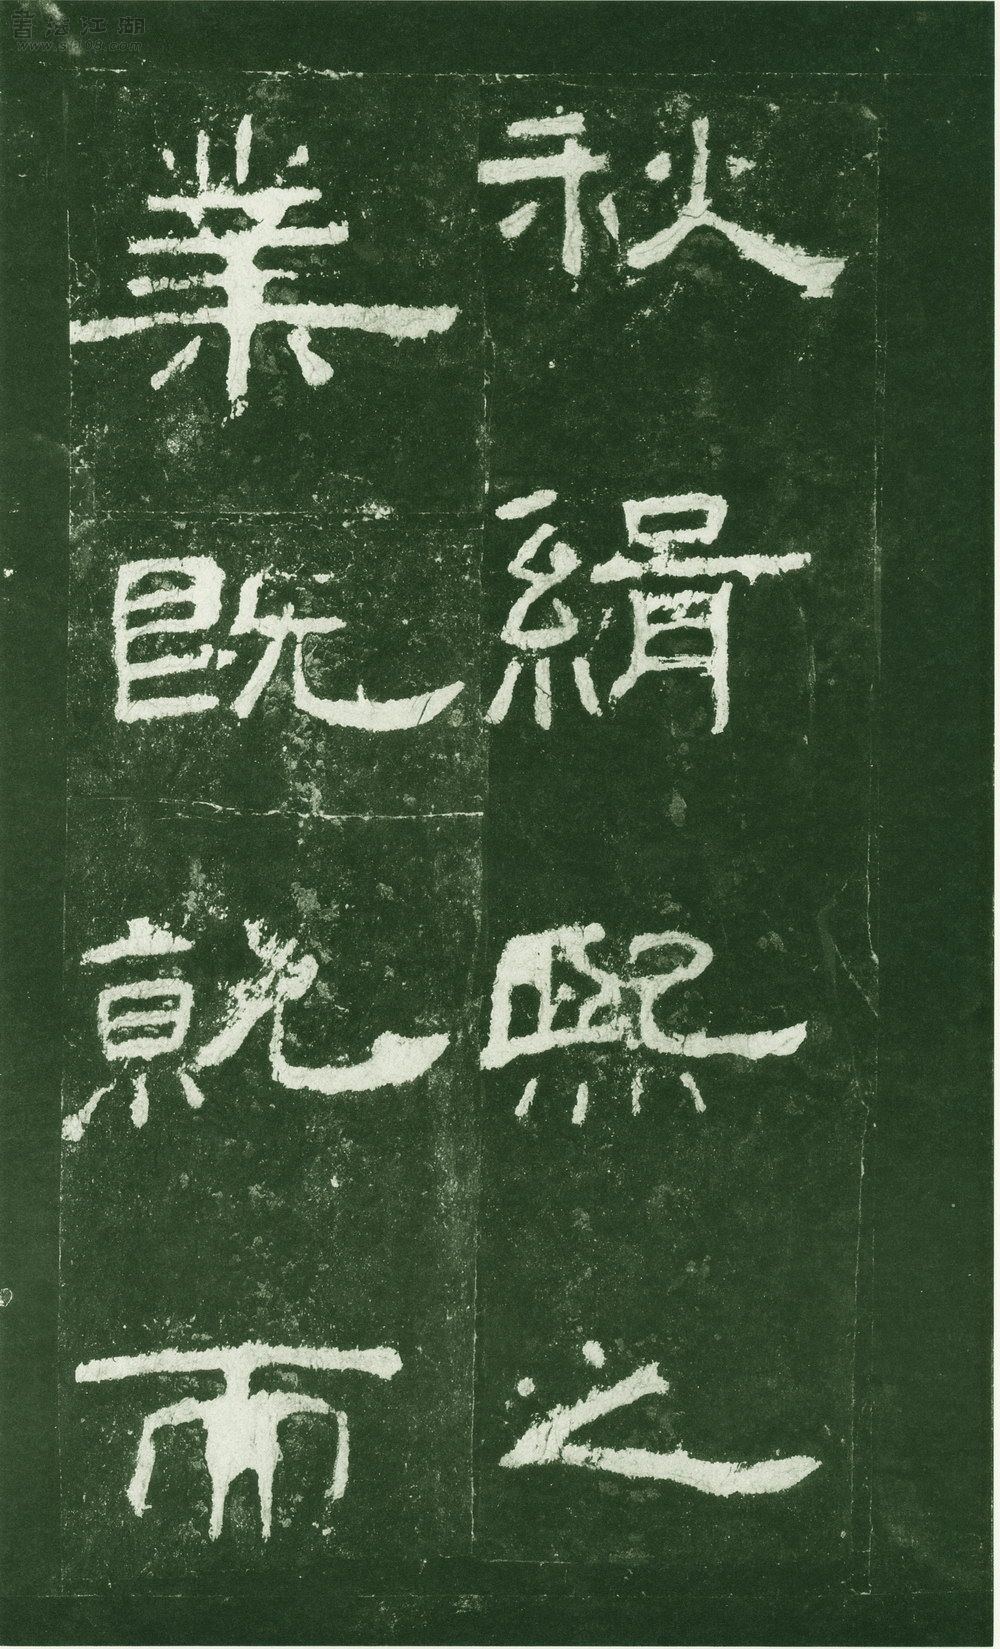 秋緝熙之
業既就而
書法江湖